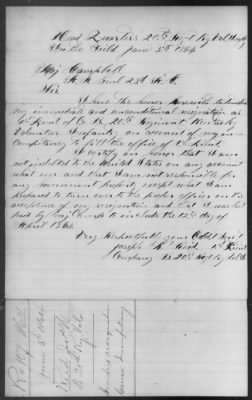 Head Quarters 20th Regt Ky Vol Infty
In the Field June 5th 1864
Maj Campbell
A. A. Genl 23d A. C.
Sir
I have the honor herewith to tender
my immediate and unconditional resignation as
1st Lieut of Co 20th Regiment Kentucky
Volunteer Infantry on account of my in-
competency to fill the office of 1st Lieut
I certify on honor that I am
not indebted to the United States on any account
what ever and that I am not responsible for
any government property except what I am
prepared to turn over to the proper officer on the
acceptance of my resignation and that I was last
paid by Maj to include the day of
April 1864
Very Respectfully your Obdt Servt
Joseph 1st Lieut
Company 20th Regt Ky Vol
June 5th 1864